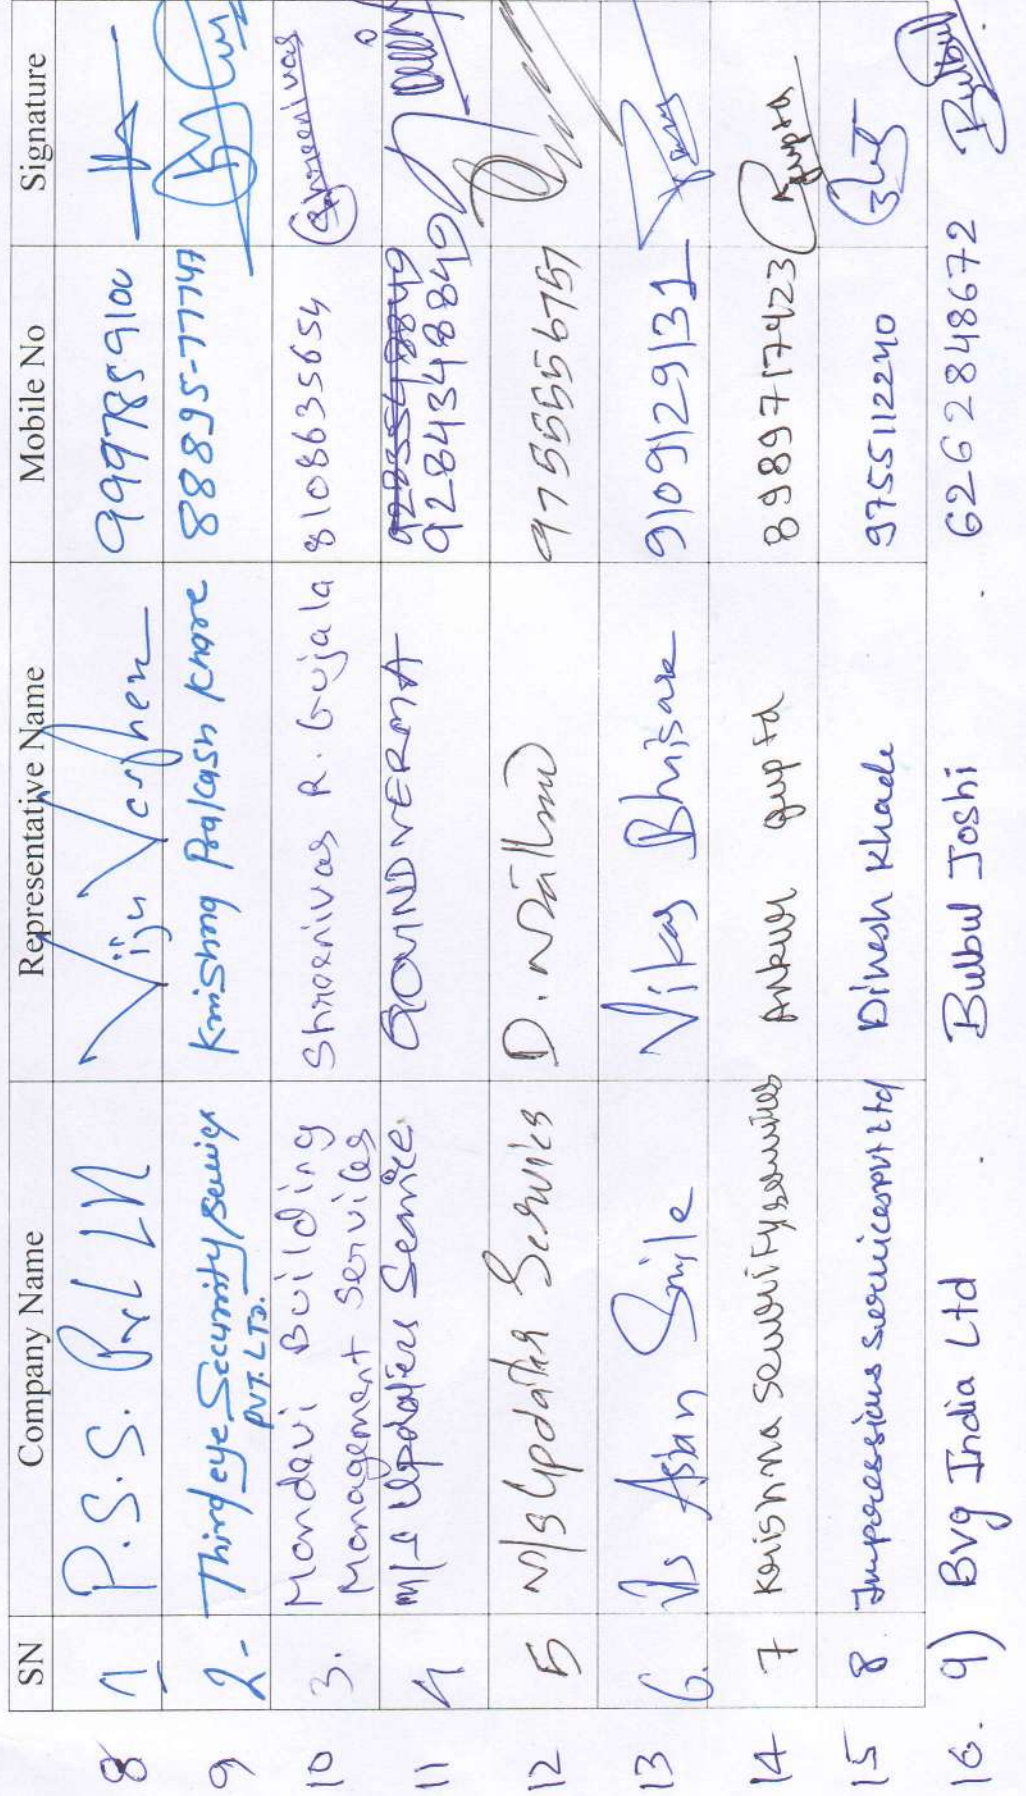 SN Company Name Representative Name Mobile No Signature
8 1 P.S.S. Viju 9997859100
9 2- Third eye Security Service Krishna Prakash Khare 88895-77747
PVT. LTD.
10 3. Mandavi Building Shreenivas R. Gujala 8108635654 Shreenivas
Management Services
11 4 M/s Updater Service GOVIND VERMA
9284348849
12 5 M/s Updater Services D. 9755556757
13 6. Asian Smile Vikas Bhaisare 9109129131
14 7 Krishna Security services Ankur gupta 8989717423 Agupta
15 8 Impressions Services Pvt Ltd Dinesh Khade 9755112240
16. 9) Bvg India Ltd . Bulbul Joshi . 6262848672 Bulbul